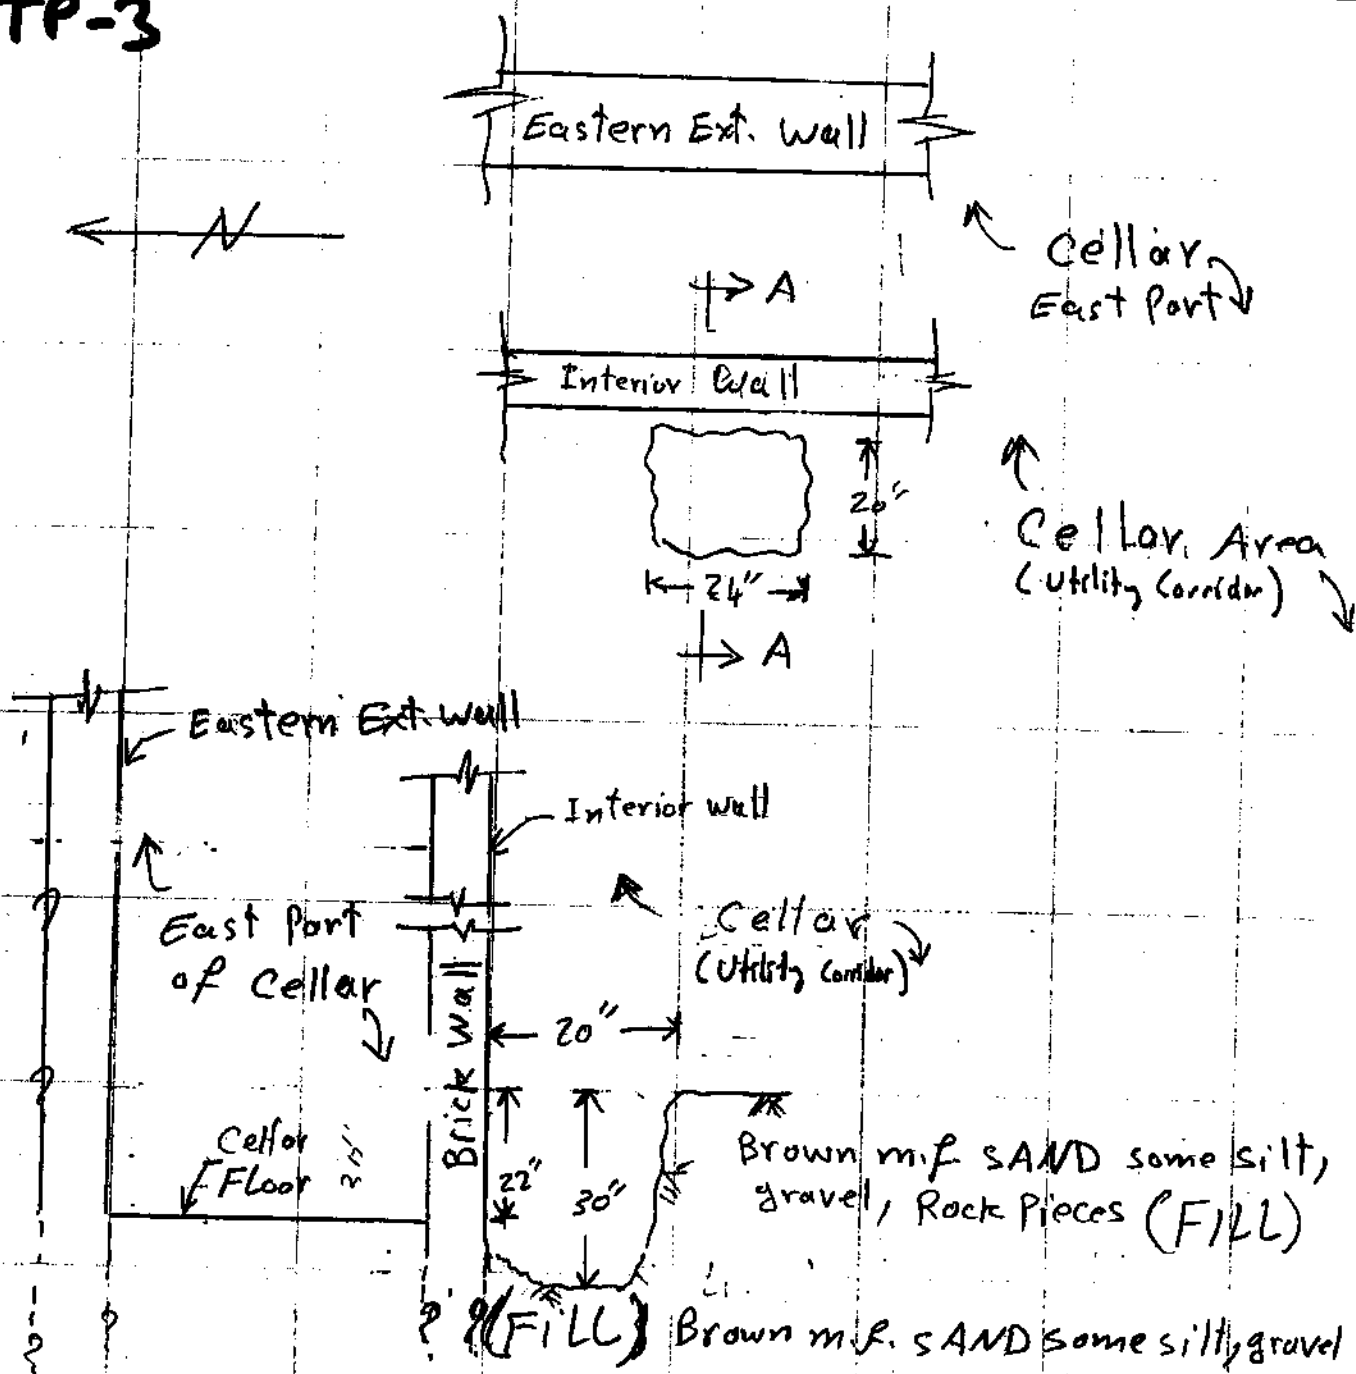 TP-3
Eastern Ext. Wall
N
Cellar
East Part
A
Interior Wall
20"
Cellar Area
(Utility Corridor)
24"
A
Eastern Ext. Wall
Interior Wall
East Part
of Cellar
Cellar
(Utility Corridor)
20"
Brick Wall
?
?
Cellar
Floor
22"
30"
Brown m.f. SAND some silt,
gravel, Rock Pieces (FILL)
?
?
?
?
(FILL) Brown m.f. SAND some silt, gravel